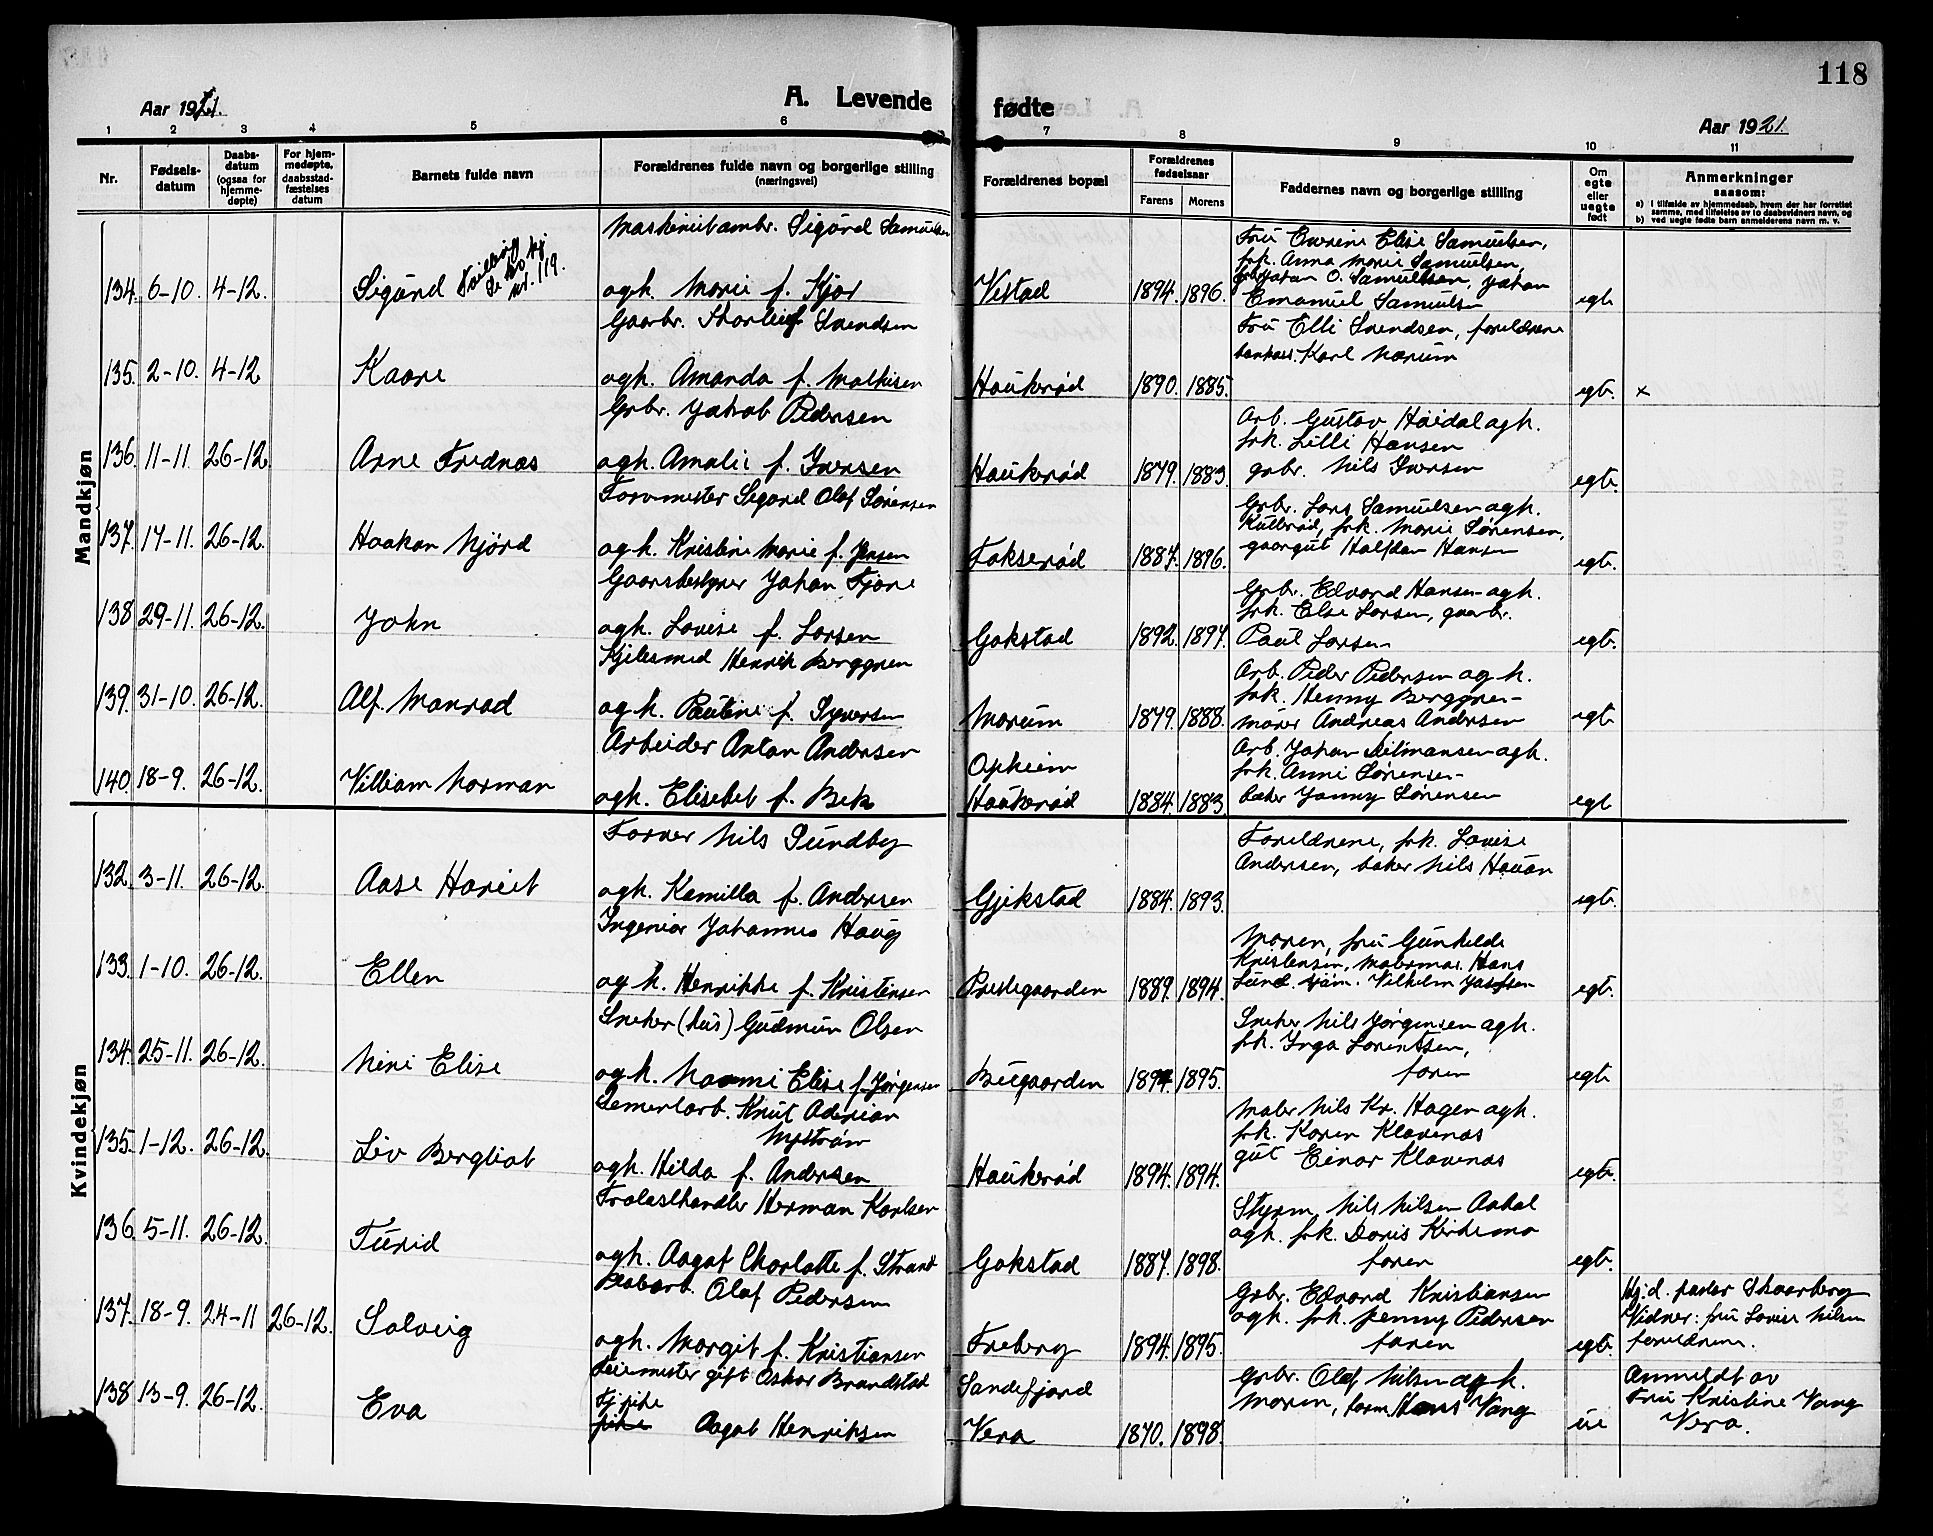 118
Aar 1921.
A. Levende fødte
Aar 1921.
1 2 3 4 5 6 7 8 9 10 11
Nr.
Fødsels-datum
Daabs-datum (ogsaa for hjemme-døpte)
For hjem-medøpte, daabsstad-fæstelses datum
Barnets fulde navn
Forældrenes fulde navn og borgerlige stilling (næringsvei)
Forældrenes bopæl
Forældrenes fødselsaar
Farens Morens
Faddernes navn og borgerlige stilling
Om egte eller uegte født
Anmerkninger saasom:
a) I tilfælde av hjemmedaab, hvem der har forrettet samme, med tilføielse av to daabsvidners navn, og
b) ved uegte fødte barn anmelderens navn m. v.
Mandkjøn
Sigurd Samuelsen Fru Elise Samuelsen,
frk. Anna Marie Samuelsen,
Johan O. Samuelsen, Johan
134. 6-10. 4-12. Sigurd Tvilling nr. 119. ogh. Marie f. Kjær Vestad 1894. 1896. Emanuel Samuelsen egt.
Gaarbr. Thorleif Svendsen Fru Elli Svendsen, forældrene
Karl Marum
135. 2-10. 4-12 Kaare ogh. Amanda f. Mathisen Haukerød 1890. 1885. egt. x
Grbr. Jakob Pedersen Arb. Gustav Haidal agh.
frk. Lilli Hansen
136. 11-11. 26-12 Arne Frednæs ogh. Amalie f. Iversen Haukerød 1879. 1883. grbr. Nils Iversen egt.
Formester Sigurd Olaf Sørensen Grbr. Lars Samuelsen agh.
Kullerød, frk. Marie Sørensen,
137. 17-11. 26-12. Haakon Njörd og h. Kristine Marie f. Jensen Fokserød 1887. 1896. gaargut Halfdan Hansen egt.
Gaarsbestyrer Johan Fjære Grbr. Edvard Hansen agh.
frk. Else Larsen, gaarbr.
138 29-11. 26-12. John ogh. Lovise f. Larsen Gokstad 1892. 1897. Paul Larsen egt.
Kjelesmed Henrik Berggren Arb. Peder Pedersen og h.
frk. Henny Berggren
139. 31-10. 26-12. Alf Monrad og h. Pauline f. Syversen Marum 1879. 1888. murer Andreas Andersen egt.
Arbeider Anton Andersen Opheim Arb. Johan agh.
frk. Anni Sørensen
140. 18-9. 26-12. William Norman ogh. Elisebet f. Bek Haukerød 1884. 1883. baker Jonny Sørensen egt
Kvindekjøn
Nils Sundby Forældrene, frk. Lovise
Andersen, baker Nils
132. 3-11. 26-12. Aase Hariet ogh. Kamilla f. Andersen Gjekstad 1884. 1893. egt.
Ingeniør Johannes Haug Moren, fru Gunhilde
Kristensen, Hans
133. 1-10. 26-12. Ellen og h. Henrikke f. Kristensen Prestegaarden 1889. 1894. Lund. Vilhelm egt.
Sneker (hus) Gudmun Olsen Sneker Nils Jørgensen agh.
frk. Inga Lorentsen,
134. 25-11. 26-12. Nini Elise og h. Naomi Elise f. Jørgensen Bugaarden 1895. faren egt.
Sementarb. Knut Adrian Nystrøm Maler Nils Kr. Hagen agh.
frk. Karen Klavenæs
135. 1-12. 26-12. Liv Bergliot ogh. Hilda f. Andersen Haukerød 1894. 1894. gut Einar Klavenæs egt.
Trælasthandler Herman Karlsen Styrm. Nils Nilsen Askal
agh. frk. Doris Kirkemo
136 5-11. 26-12. Turid ogh. Aagot Charlotte f. Strand Gokstad 1887. 1898. faren egt.
Olaf Pedersen Grbr. Edvard Kristiansen Hj.d. pastor Skaarberg
agh. frk. Jenny Pedersen Vidner: fru Lovise Nilsen
137. 18-9. 24-11 26-12. Solveig ogh. Margit f. Kristiansen Freberg 1894. 1895. faren egt. forældrene.
gift Oskar Brandstad Sandefjord Grbr. Olaf Nilsen og h. Anmeldt av
138 13-9. 26-12. Eva Tj.pike moren, Hans Vang Fru Kristine Vang
Aagot Henriksen Vera 1870. 1898. ue Vera.